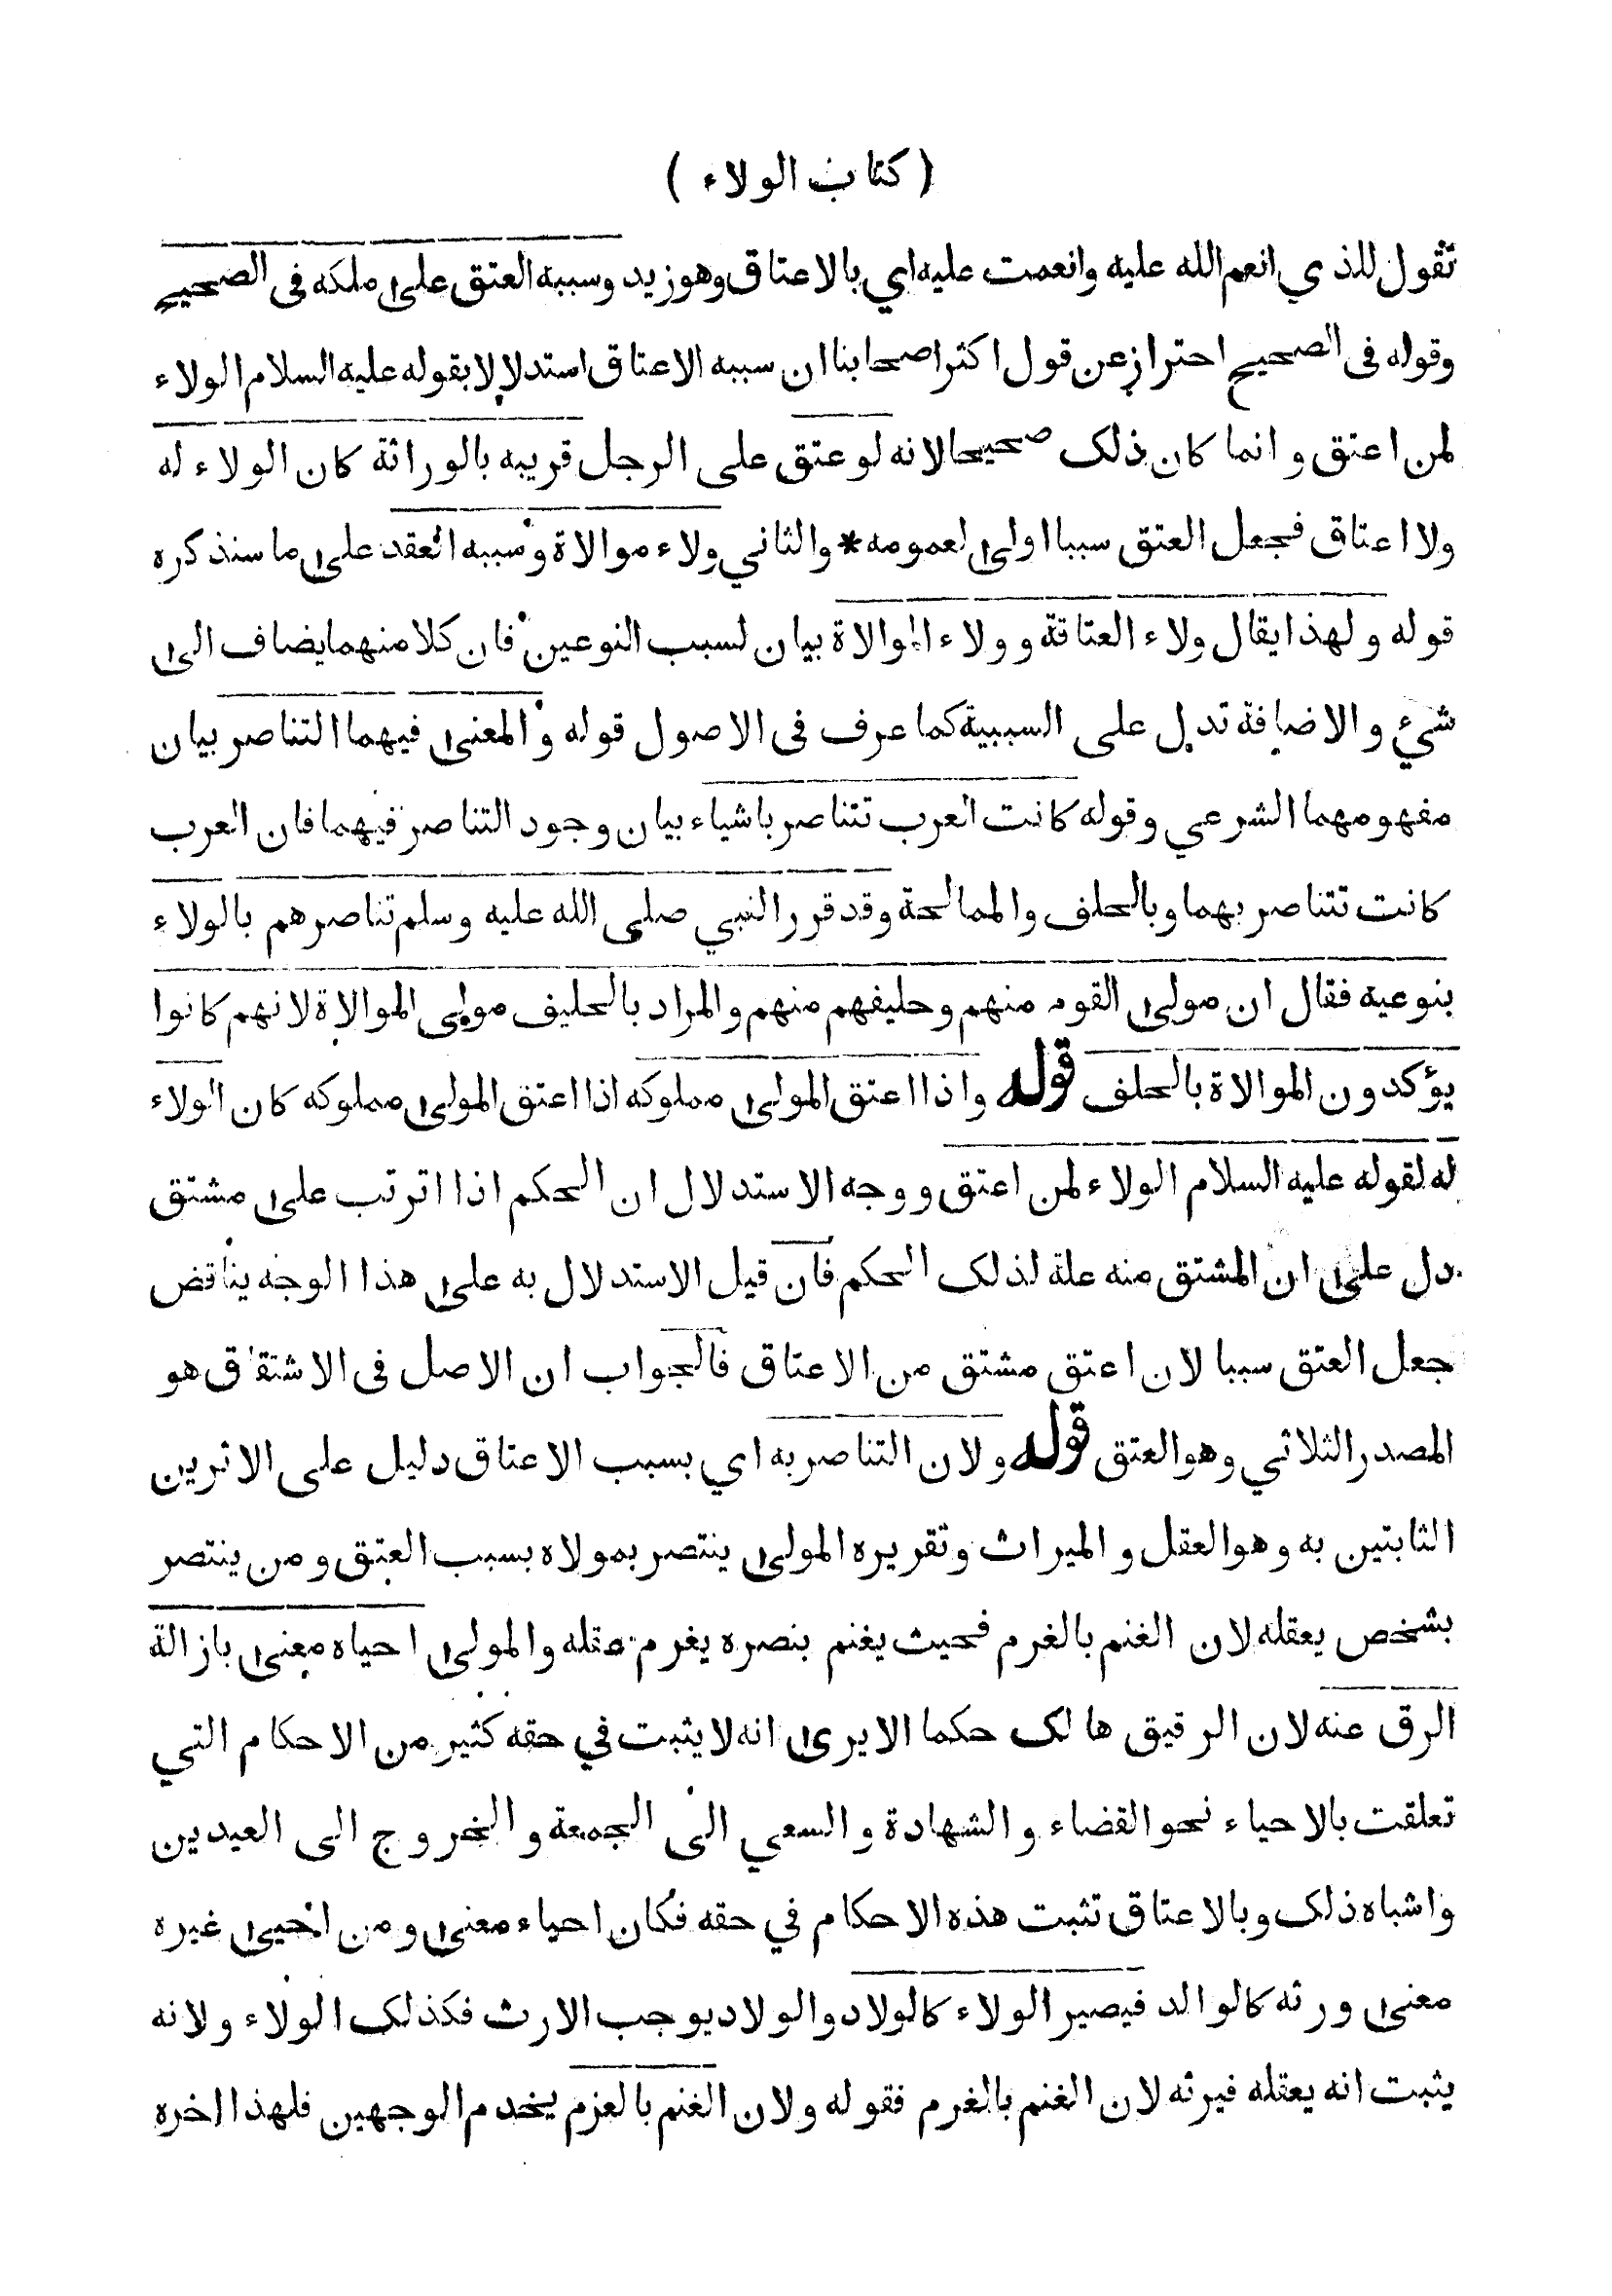 ( كتاب الولاء )
تقول للذي انعم الله عليه وانعمت عليه اي بالاعتاق وهو زيد وسببه العتق على ملكه فى الصحيح
وقوله فى الصحيح احتراز عن قول اكثر اصحابنا ان سببه الاعتاق استدلالا بقوله عليه السلام الولاء
لمن اعتق و انما كان ذلك صحيحا لانه لو عتق على الرجل قريبه بالوراثة كان الولاء له
ولا اعتاق فجعل العتق سببا اولى لعمومه * والثاني ولاء موالاة وسببه العقد على ما سنذكره
قوله ولهذا يقال ولاء العتاقة و ولاء الموالاة بيان لسبب النوعين فان كلا منهما يضاف الى
شيء و الاضافة تدل على السببية كما عرف فى الاصول قوله والمعنى فيهما التناصر بيان
مفهومهما الشرعي وقوله كانت العرب تتناصر باشياء بيان وجود التناصر فيهما فان العرب
كانت تتناصر بهما وبالحلف والممالحة وقد قرر النبي صلى الله عليه وسلم تناصرهم بالولاء
بنوعيه فقال ان مولى القوم منهم وحليفهم منهم والمراد بالحليف مولى الموالاة لانهم كانوا
يؤكدون الموالاة بالحلف قوله واذا اعتق المولى مملوكه اذا اعتق المولى مملوكه كان الولاء
له لقوله عليه السلام الولاء لمن اعتق و وجه الاستدلال ان الحكم اذا اترتب على مشتق
دل على ان المشتق منه علة لذلك الحكم فان قيل الاستدلال به على هذا الوجه يناقض
جعل العتق سببا لان اعتق مشتق من الاعتاق فالجواب ان الاصل فى الاشتقاق هو
المصدر الثلاثي وهو العتق قوله ولان التناصر به اي بسبب الاعتاق دليل على الاثرين
الثابتين به وهو العقل و الميراث وتقريره المولى ينتصر بمولاه بسبب العتق ومن ينتصر
بشخص يعقله لان الغنم بالغرم فحيث يغنم بنصره يغرم عقله والمولى احياه معنى بازالة
الرق عنه لان الرقيق هالك حكما الا يرى انه لا يثبت في حقه كثير من الاحكام التي
تعلقت بالاحياء نحو القضاء و الشهادة و السعي الى الجمعة و الخروج الى العيدين
واشباه ذلك وبالاعتاق تثبت هذه الاحكام في حقه فكان احياء معنى و من احيى غيره
معنى ورثه كالوالد فيصير الولاء كالولاد والولاد يوجب الارث فكذلك الولاء ولانه
يثبت انه يعقله فيرثه لان الغنم بالغرم فقوله ولان الغنم بالعزم يخدم الوجهين فلهذا اخره